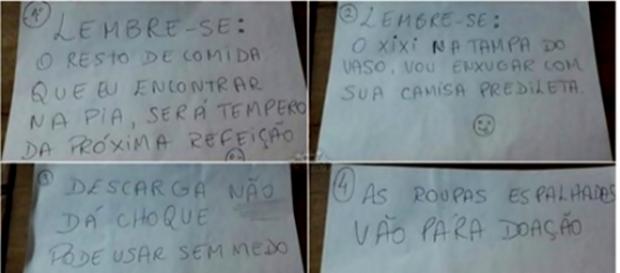 1º LEMBRE-SE:
O RESTO DE COMIDA
QUE EU ENCONTRAR
NA PIA, SERÁ TEMPERO
DA PRÓXIMA REFEIÇÃO
2 LEMBRE-SE:
O XIXI NA TAMPA DO
VASO, VOU ENXUGAR COM
SUA CAMISA PREDILETA.
3 DESCARGA NÃO
DÁ CHOQUE
PODE USAR SEM MEDO
4 AS ROUPAS ESPALHADAS
VÃO PARA DOAÇÃO